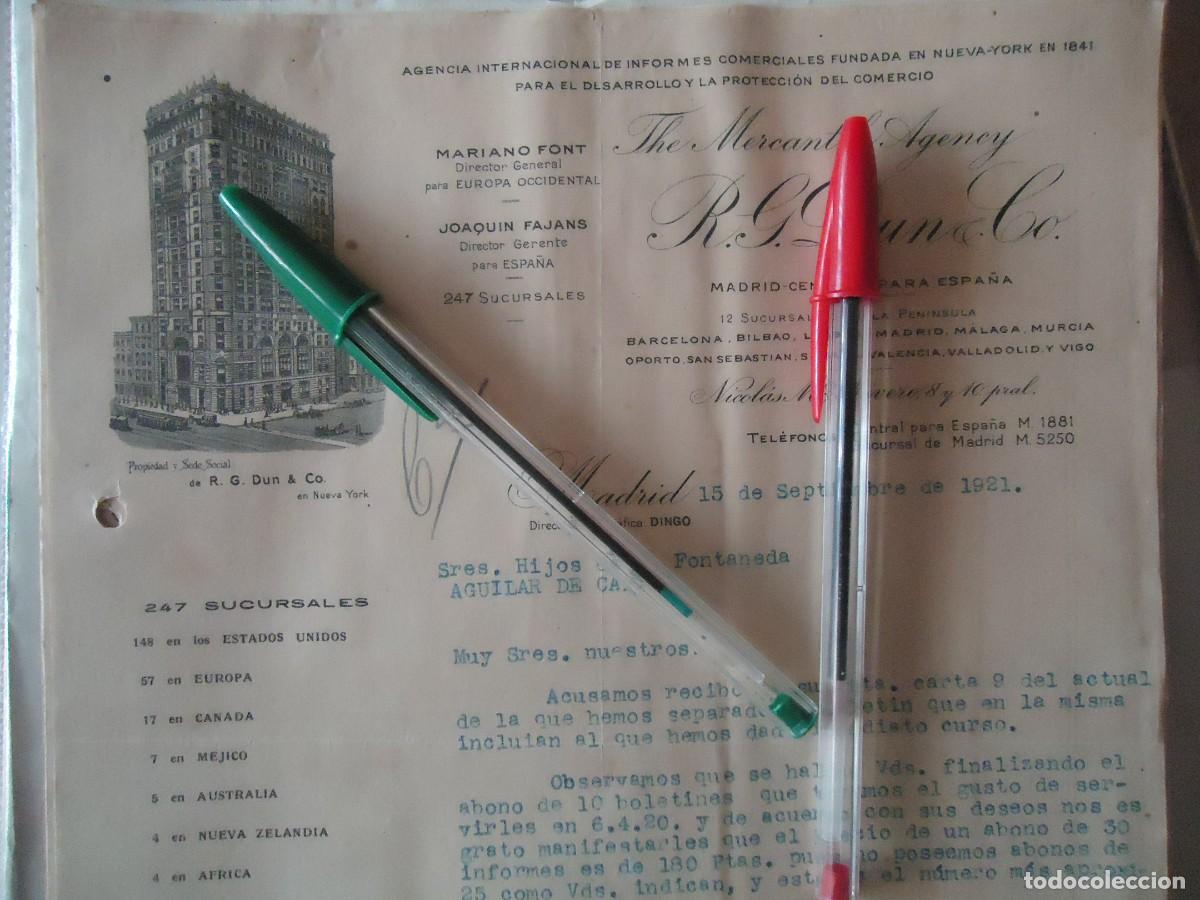 AGENCIA INTERNACIONAL DE INFORMES COMERCIALES FUNDADA EN NUEVA-YORK EN 1841
PARA EL DESARROLLO Y LA PROTECCIÓN DEL COMERCIO
MARIANO FONT
Director General
para EUROPA OCCIDENTAL
JOAQUIN FAJANS
Director Gerente
para ESPAÑA
247 SUCURSALES
The Mercantil Agency
R.G. Dun & Co.
MADRID-CEN PARA ESPAÑA
12 SUCURSAL LA PENINSULA
BARCELONA, BILBAO, L MADRID, MÁLAGA, MURCIA
OPORTO, SAN SEBASTIAN, S VALENCIA, VALLADOLID, Y VIGO
Nicolás M vero, 8 y 10 pral.
TELÉFONO ntral para España M. 1881
cursal de Madrid M. 5250
Propiedad y Sede Social
de R. G. DUN & CO.
en Nueva York
Madrid 15 de Septiembre de 1921.
Direc fica: DINGO
Sres. Hijos Fontaneda
AGUILAR DE CA
247 SUCURSALES
148 en los ESTADOS UNIDOS
57 en EUROPA
17 en CANADA
7 en MEJICO
5 en AUSTRALIA
4 en NUEVA ZELANDIA
4 en AFRICA
Muy Sres. nuestros.
Acusamos recibo su ta. carta 9 del actual
de la que hemos separad etin que en la misma
incluian al que hemos dad diato curso.
Observamos que se hal Vds. finalizando el
abono de 10 boletines que mos el gusto de ser-
virles en 6.4.20. y de acue con sus deseos nos es
grato manifestarles que el cio de un abono de 30
informes es de 180 Ptas. pu no poseemos abonos de
25 como Vds. indican, y est el número más aproxi
todocoleccion